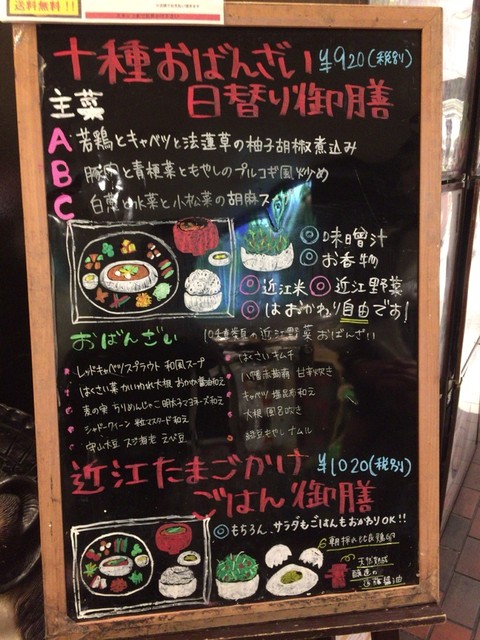 送料無料!!
十種おばんざい ¥920(税別)
日替り御膳
主菜
A 若鶏とキャベツと法蓮草の柚子胡椒煮込み
B 豚肉と青梗菜ともやしのプルコギ風炒め
C 白菜と水菜と小松菜の胡麻
◎味噌汁
◎お香物
◎近江米 ◎近江野菜
◎はおかわり自由です!
おばんざい 10種類の近江野菜おばんざい
レッドキャベツスプラウト 和風スープ
はくさい菜 かいわれ大根 おかか醤油和え
麦の実 ちりめんじゃこ 明太子マヨネーズ和え
シャドークイーン 粒マスタード和え
守山大豆 スジ海老 えび豆
はくさい キムチ
八幡赤蒟蒻 甘辛炊き
キャベツ 塩昆布和え
大根 田舎炊き
緑豆もやし ナムル
近江たまごかけ ¥1020(税別)
ごはん御膳
◎もちろん、サラダもごはんもおかわりOK!!
朝採れ比良鶏卵
天然熟成
醸造の
近江醤油